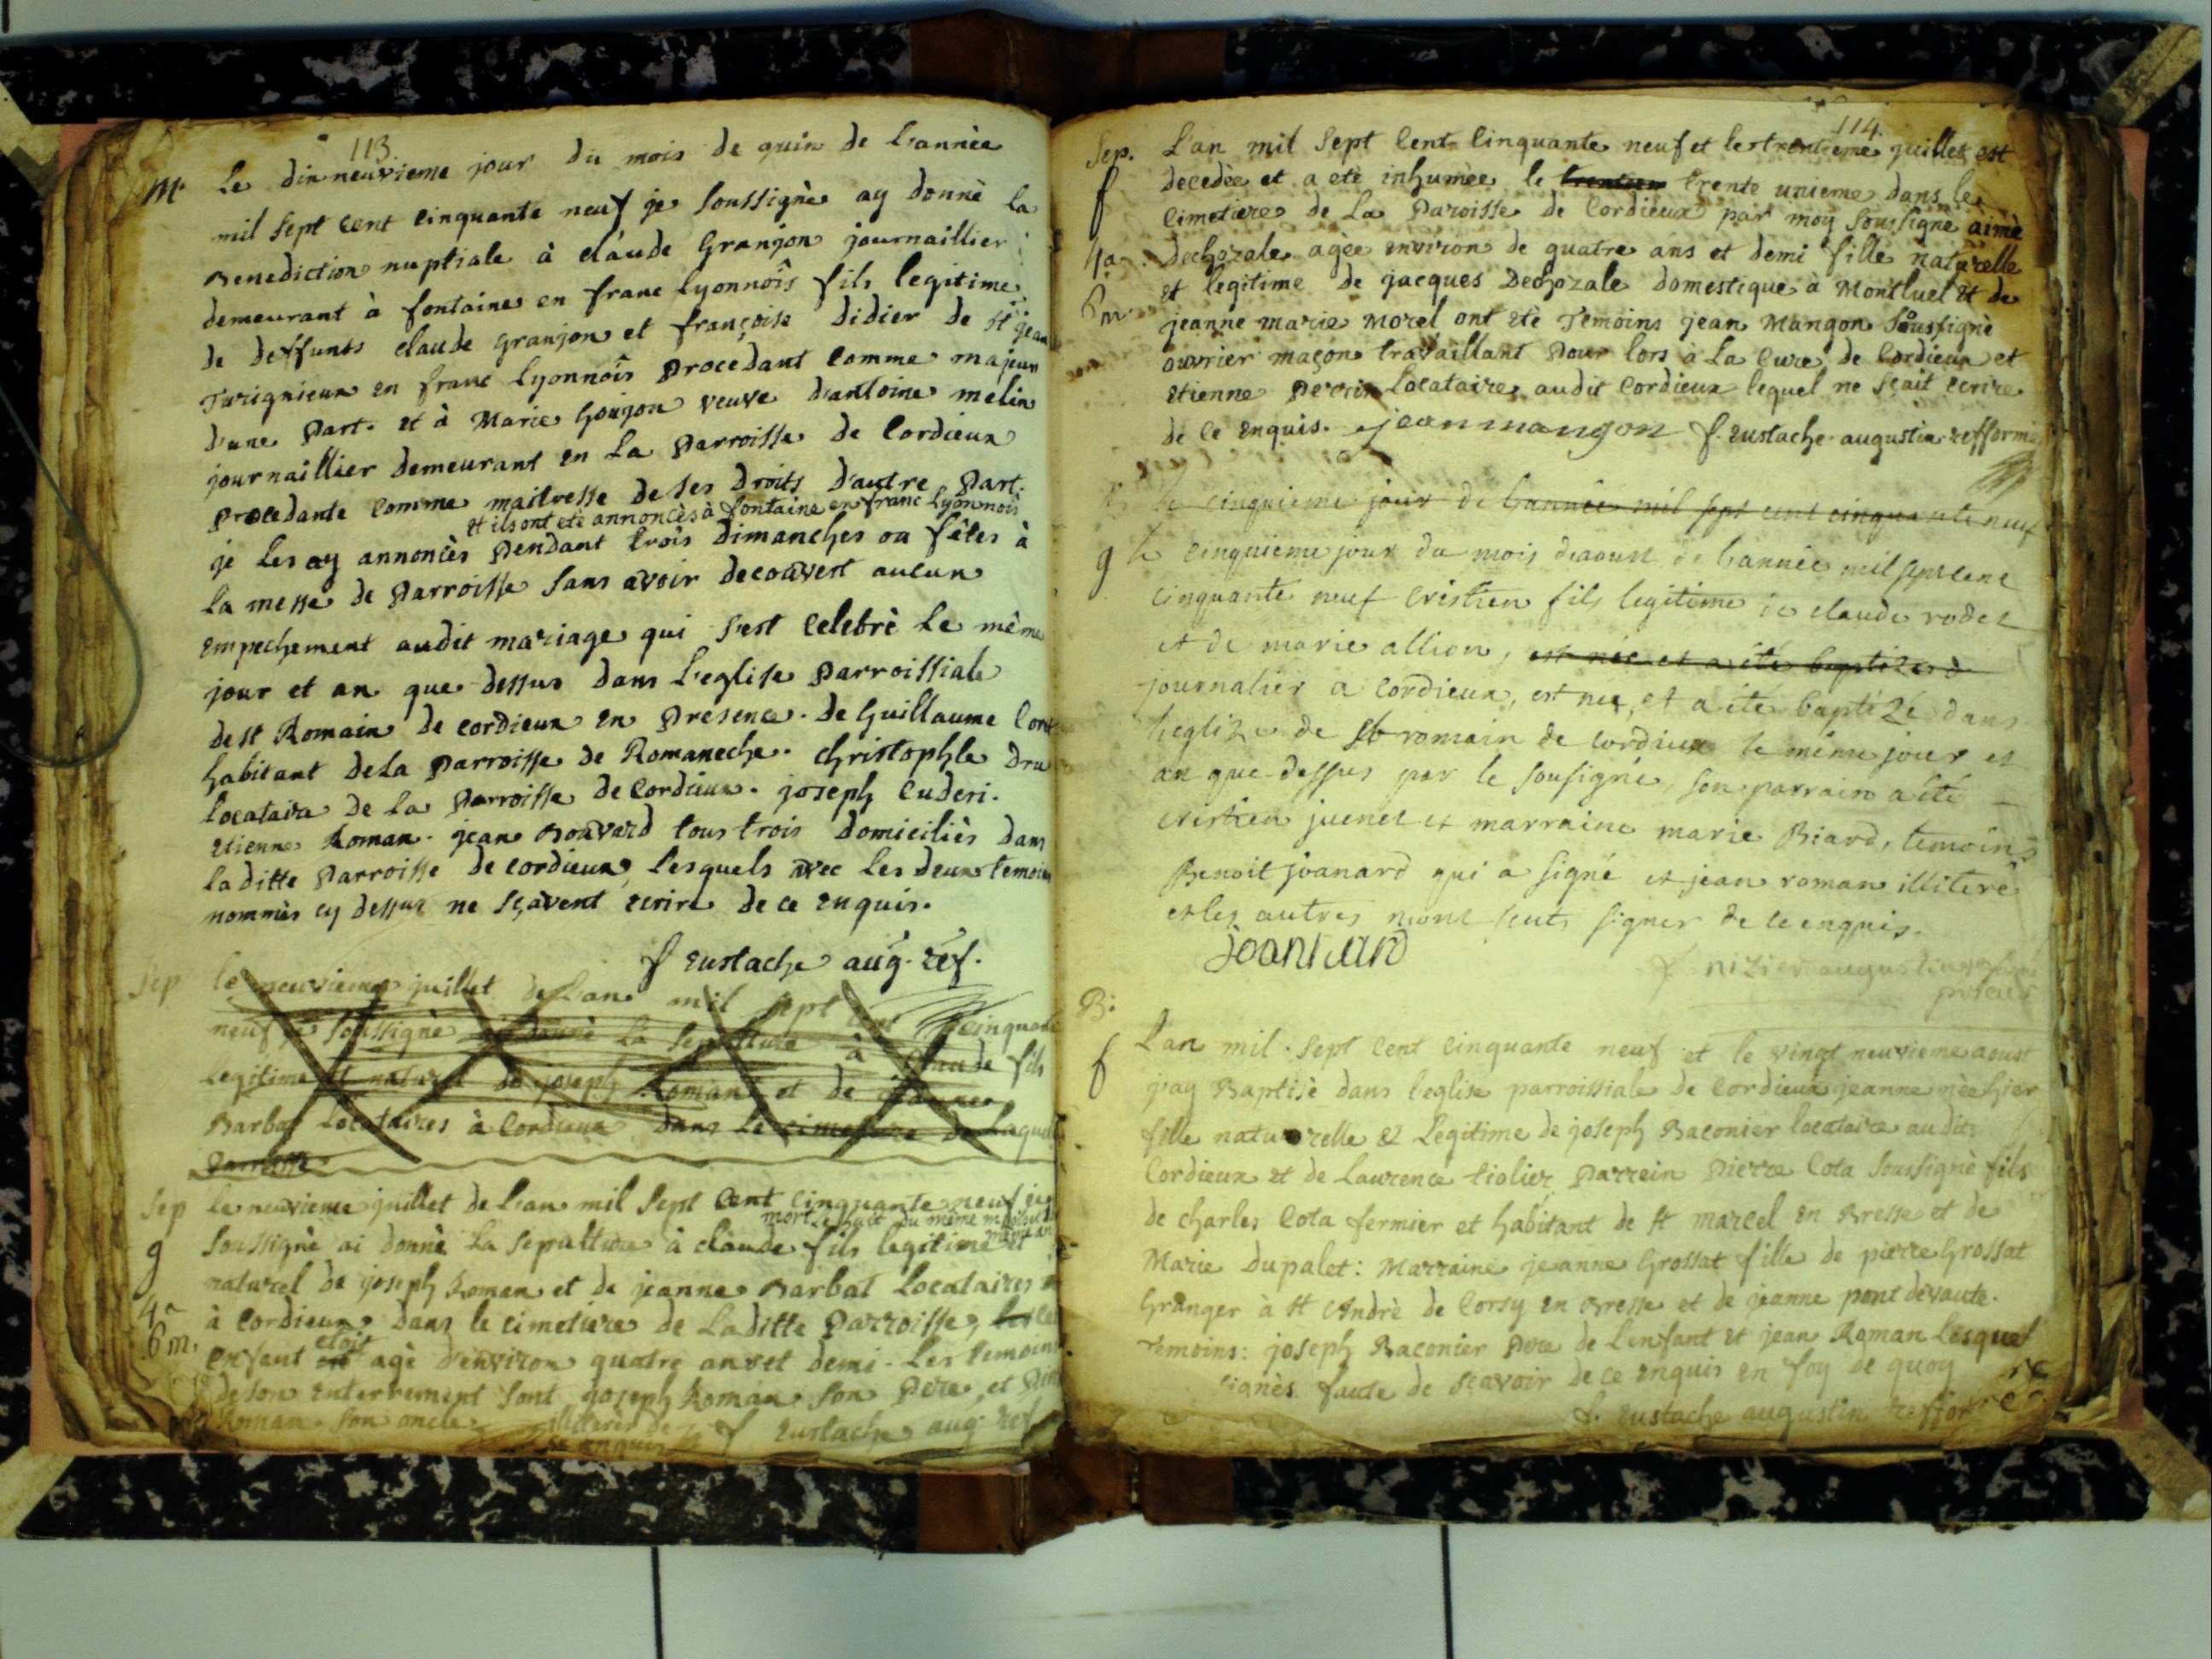 113
M. Le dixneuvieme jour du mois de juin de l'année
mil sept cent cinquante neuf je soussigné ay donné la
Benediction nuptiale à claude Granjon journaillier
demeurant à fontaines en franc lyonnois fils legitime
de deffunts claude granjon et françoise didier de st jean
Turignieux en franc lyonnois procedant comme majeur
d'une part. et à Marie Goujon veuve d'antoine melin
journaillier demeurant en la parroisse de Cordieux
procedante comme maitresse de ses droits d'autre part.
et ils ont eté annoncès à fontaine en franc lyonnois
je les ay annoncès pendant trois dimanches ou fêtes à
la messe de parroisse sans avoir decouvert aucun
empechement audit mariage qui s'est celebrè le même
jour et an que dessus dans l'eglise parroissiale
de st Romain de cordieux en presence de Guillaume
habitant de la parroisse de Romaneche. christophle dru
locataire de la parroisse de Cordieux. joseph cuderi.
etienne Roman. jean Bouvard tous trois domiciliès dans
la ditte parroisse de cordieux, lesquels avec les deux temoins
nommès cy dessus ne sçavent ecrire de ce enquis.
f eustache aug. ref.
Sep le neuvieme juillet de l'an mil sept cent cinquante
neuf je soussignè ai donnè la sepulture à claude fils
legitime et naturel de joseph Roman et de jeanne
Barbat locataires à Cordieux dans le cimetiere de laquelle
parroisse
Sep le neuvieme juillet de l'an mil sept cent cinquante neuf je
mort le huit du même mois
g soussignè ai donnè la sepulture à claude fils legitime et
naturel de joseph Roman et de jeanne Barbat locataires
4a à Cordieux dans le cimetiere de laditte parroisse,
etoit
6 m. enfant agè d'environ quatre ans et demi. les temoins
de son enterrement sont joseph Roman son pere, et
Roman son oncle illiterès de
ce enquis f eustache aug. ref
114
Sep. L'an mil sept cent cinquante neuf et le trentieme juillet est
f decedèe et a etè inhumèe le trente unieme dans le
cimetiere de La paroisse de Cordieux par moy soussigné aimè
4a. dechozale agèe environ de quatre ans et demi fille naturelle
6 m et legitime de jacques Dechozale domestique à Montluel et de
jeanne marie Morel ont etè Temoins jean Mangon soussignè
ouvrier maçon travaillant pour lors à La Cure de Cordieux et
etienne perrin Locataire audit Cordieux lequel ne sçait ecrire
de ce enquis. jean mangon f. eustache augustin refformé
le cinquieme jour de l'annèe mil sept cent cinquante neuf
g le cinquieme jour du mois daoust de lannèe mil sept cent
cinquante neuf Cristien fils legitime de claude rodet
et de marie allion, est née et a ète baptize à
journalier a Cordieux, est nee, et a ète baptizé dans
leglize de st romain de Cordieux le même jour et
an que dessus par le sousigné, son parrain a ète
cristien juenet et marraine marie Biard, temoins
Benoit joanard qui a signé et jean roman illiterè
et les autres n'ont seuts signer de ce enquis.
joannard
f nizier augustin
prieur
B: L'an mil sept cent cinquante neuf et le vingt neuvieme aoust
f j'ay Baptisè dans l'eglise parroissiale de Cordieux jeanne nèe hier
fille naturelle et Legitime de joseph Baconier locataire audit
Cordieux et de Laurence tiolier parrein pierre Cota soussignè fils
de charles Cota fermier et habitant de st marcel en Bresse et de
Marie Dupalet: Marraine jeanne Grossat fille de pierre Grossat
Granger à st Andrè de Corsy en Bresse et de jeanne pont devaute.
Temoins: joseph Baconier pere de L'enfant et jean Roman Lesquel
signès faute de sçavoir de ce enquis en foy de quoy
f. eustache augustin reffor